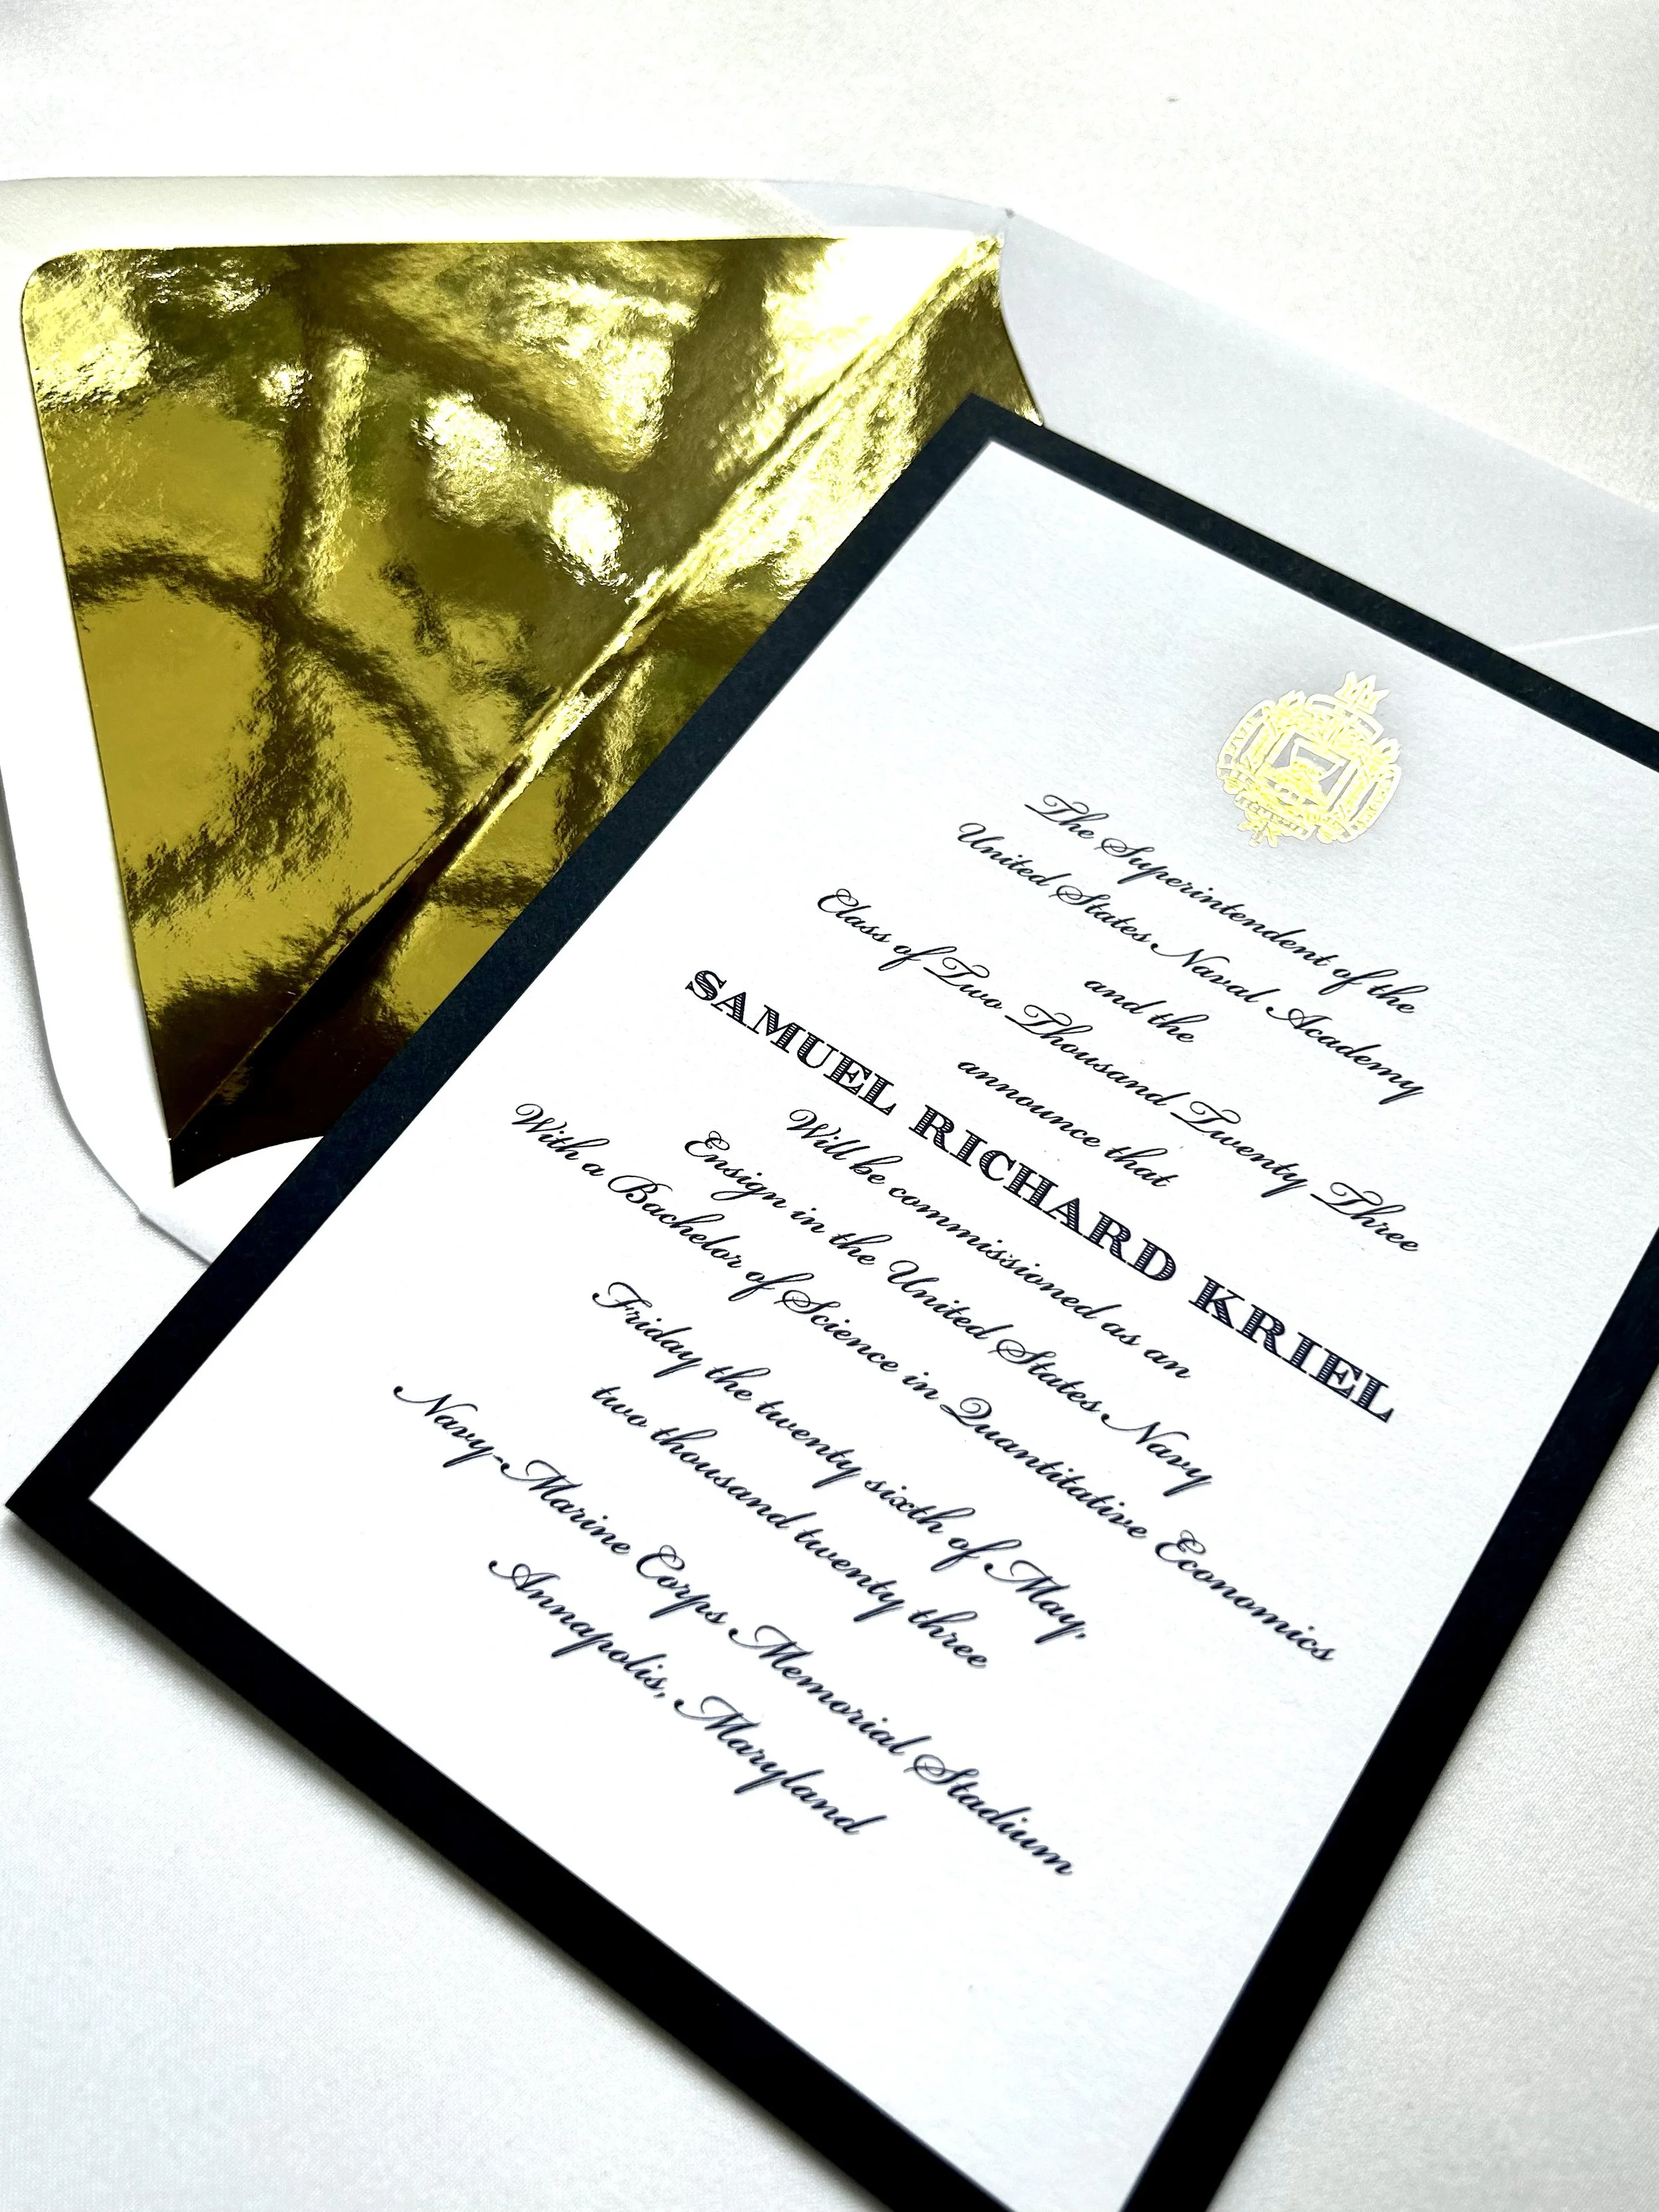 The Superintendent of the
United States Naval Academy
and the
Class of Two Thousand Twenty Three
announce that
SAMUEL RICHARD KRIEL
Will be commissioned as an
Ensign in the United States Navy
With a Bachelor of Science in Quantitative Economics
Friday the twenty sixth of May,
two thousand twenty three
Navy-Marine Corps Memorial Stadium
Annapolis, Maryland